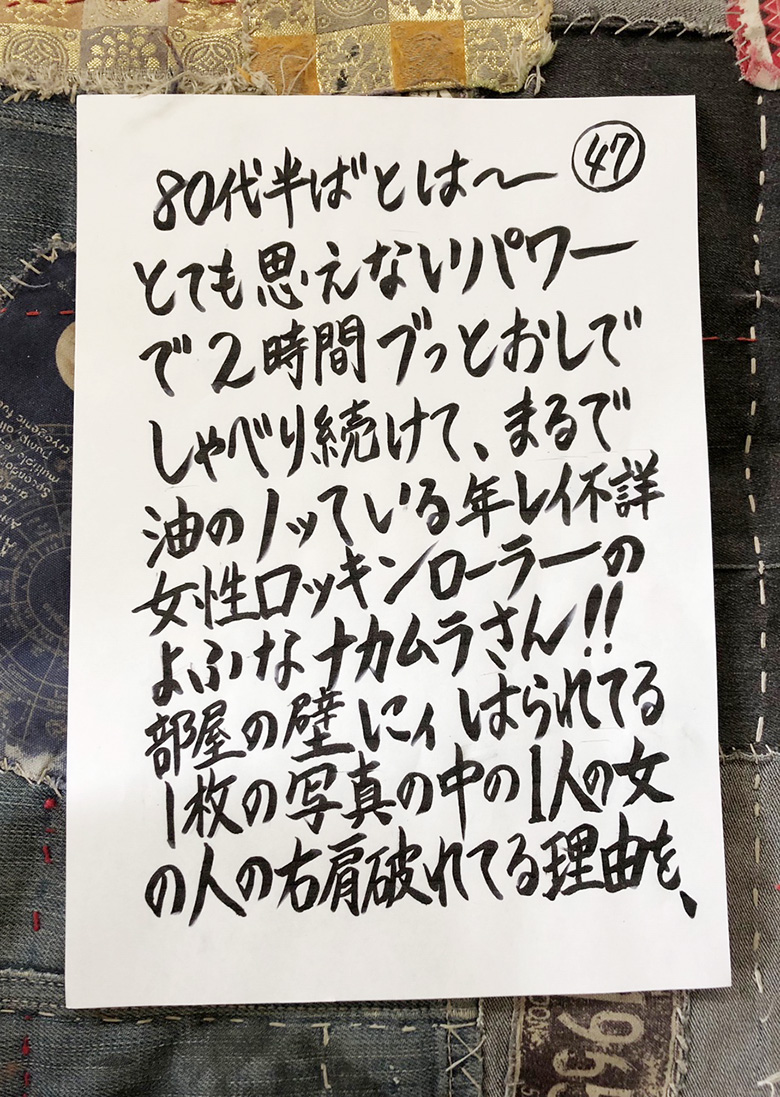 ㊼
80代半ばとは〜
とても思えないパワー
で2時間ブっとおしで
しゃべり続けて、まるで
油のノッている年レイ不詳
女性ロッキンローラーの
よふなナカムラさん!!
部屋の壁にィはられてる
1枚の写真の中の1人の女
の人の右肩破れてる理由を、